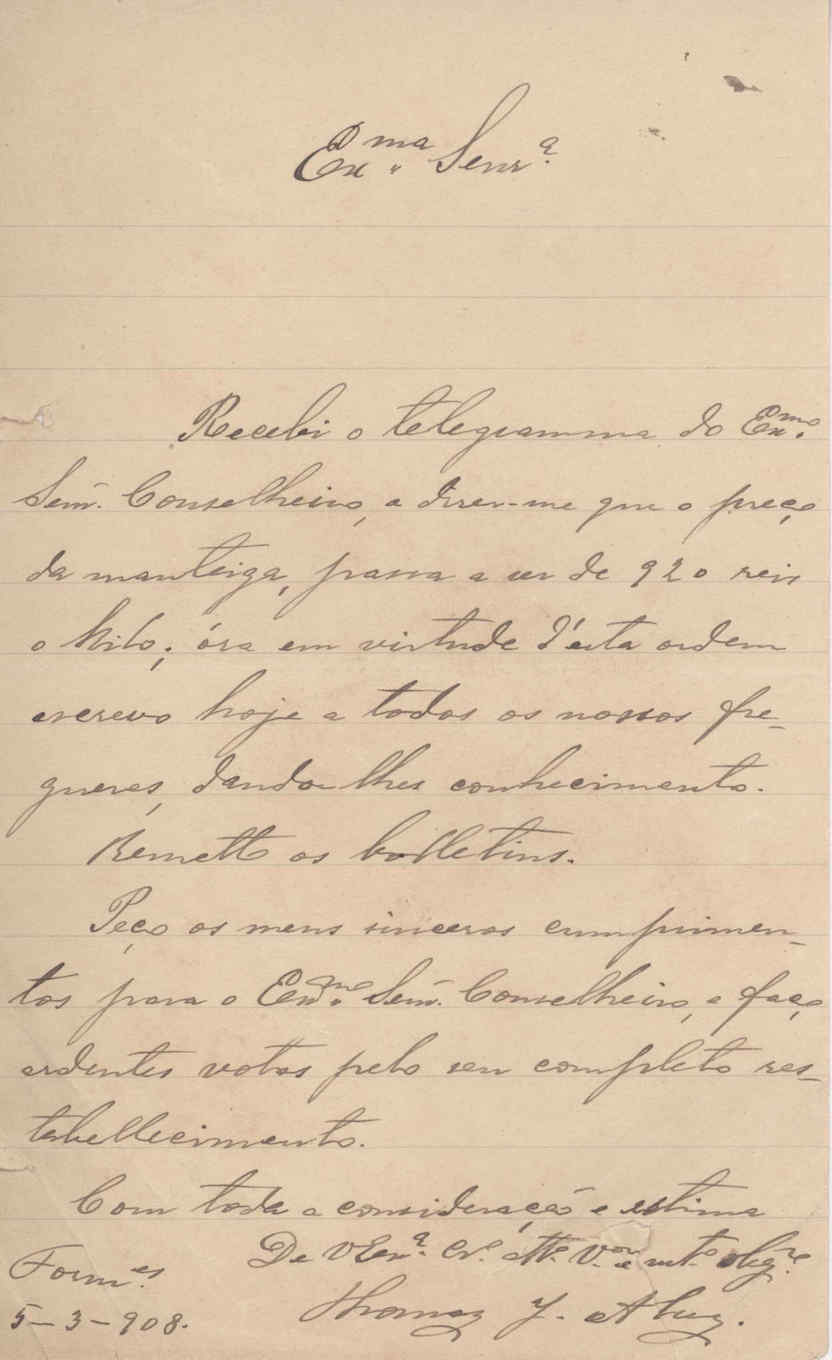 Ex.ma Senr.ª
Recebi o telegramma do Ex.mo
Senr. Conselheiro, a dizer-me que o preço
da manteiga, passa a ser de 920 reis
o kilo; óra em virtude d'esta ordem
escrevo hoje a todos os nossos fre-
guezes, dando-lhes conhecimento.
Remetto os bolletins.
Peço os meus sinceros cumprimen-
tos para o Ex.mo Senr. Conselheiro, e faço
ardentes votos pelo seu completo res-
tabellecimento.
Com toda a consideração e estima
De V Ex.ª Cr.º Att.º V.or e mt.º obg.
Form.es
5-3-908.
Thomaz J.